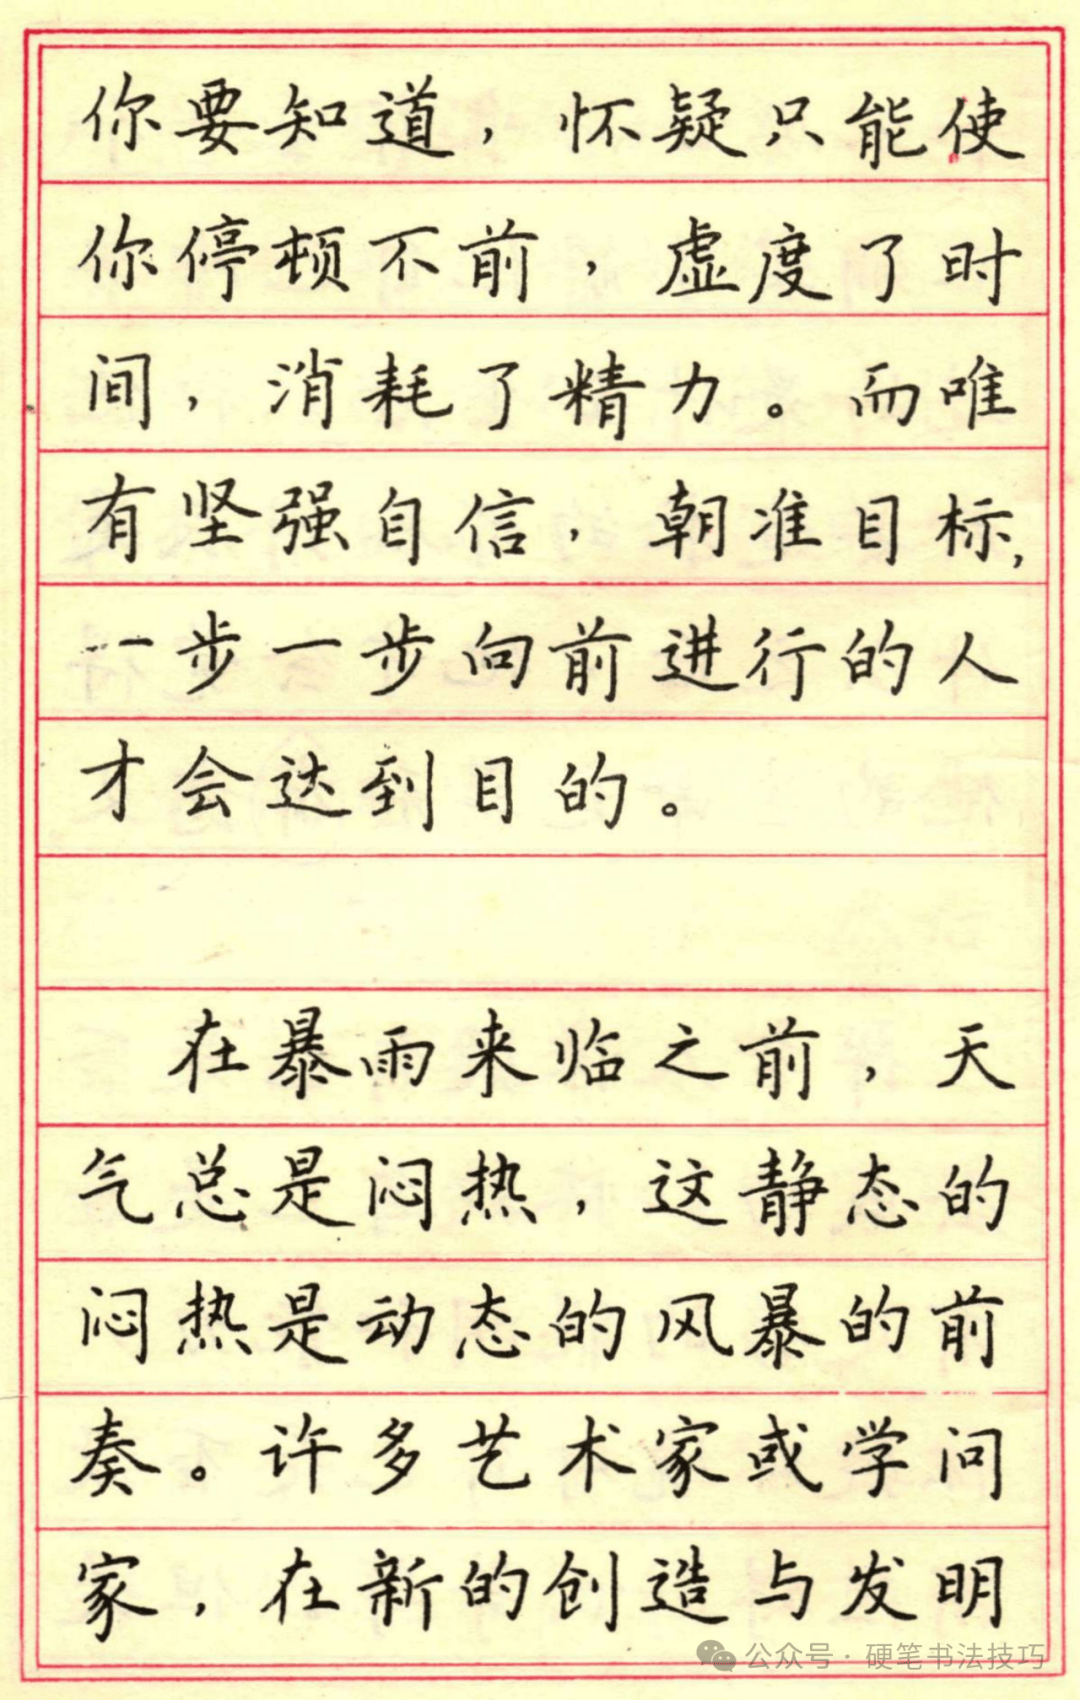 你要知道，怀疑只能使
你停顿不前，虚度了时
间，消耗了精力。而唯
有坚强自信，朝准目标，
一步一步向前进行的人
才会达到目的。
在暴雨来临之前，天
气总是闷热，这静态的
闷热是动态的风暴的前
奏。许多艺术家或学问
家，在新的创造与发明
公众号·硬笔书法技巧